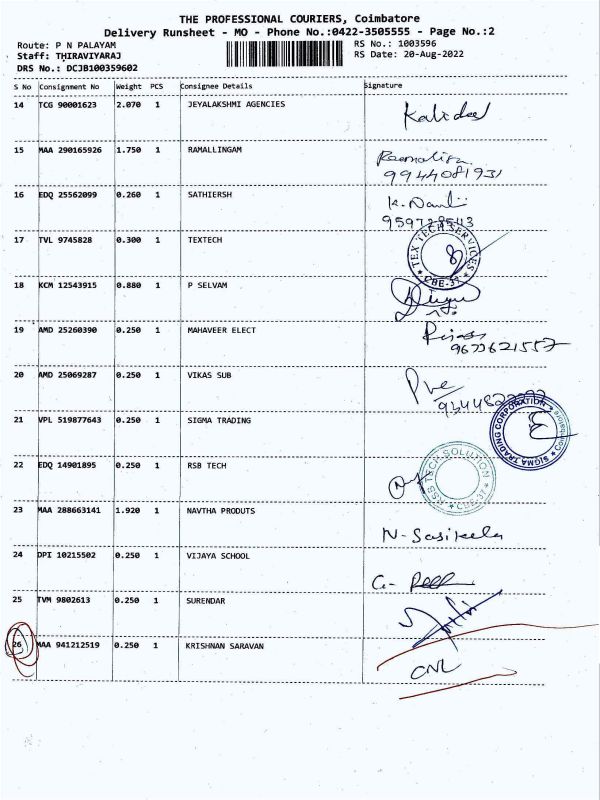 THE PROFESSIONAL COURIERS, Coimbatore
Delivery Runsheet - MO - Phone No.:0422-3505555 - Page No.:2
Route: P N PALAYAM RS No.: 1003596
Staff: THIRAVIYARAJ RS Date: 20-Aug-2022
DRS No.: DCJB100359602
S No Consignment No Weight PCS Consignee Details Signature
14 TCG 90001623 2.070 1 JEYALAKSHMI AGENCIES
Kalidas
15 MAA 290165926 1.750 1 RAMALLINGAM
9944081931
16 EDQ 25562099 0.260 1 SATHIERSH
K.
17 TVL 9745828 0.300 1 TEXTECH
TEX TECH SERVICES
CBE-37
18 KCM 12543915 0.880 1 P SELVAM
19 AMD 25260390 0.250 1 MAHAVEER ELECT
9677621557
20 AMD 25069287 0.250 1 VIKAS SUB
21 VPL 519877643 0.250 1 SIGMA TRADING
SIGMA TRADING CORPORATION
Coimbatore
22 EDQ 14901895 0.250 1 RSB TECH
RSB TECH SOLUTION
CBE-37
23 MAA 288663141 1.920 1 NAVTHA PRODUTS
N-Sasikala
24 DPI 10215502 0.250 1 VIJAYA SCHOOL
25 TVM 9802613 0.250 1 SURENDAR
26 MAA 941212519 0.250 1 KRISHNAN SARAVAN
CNL